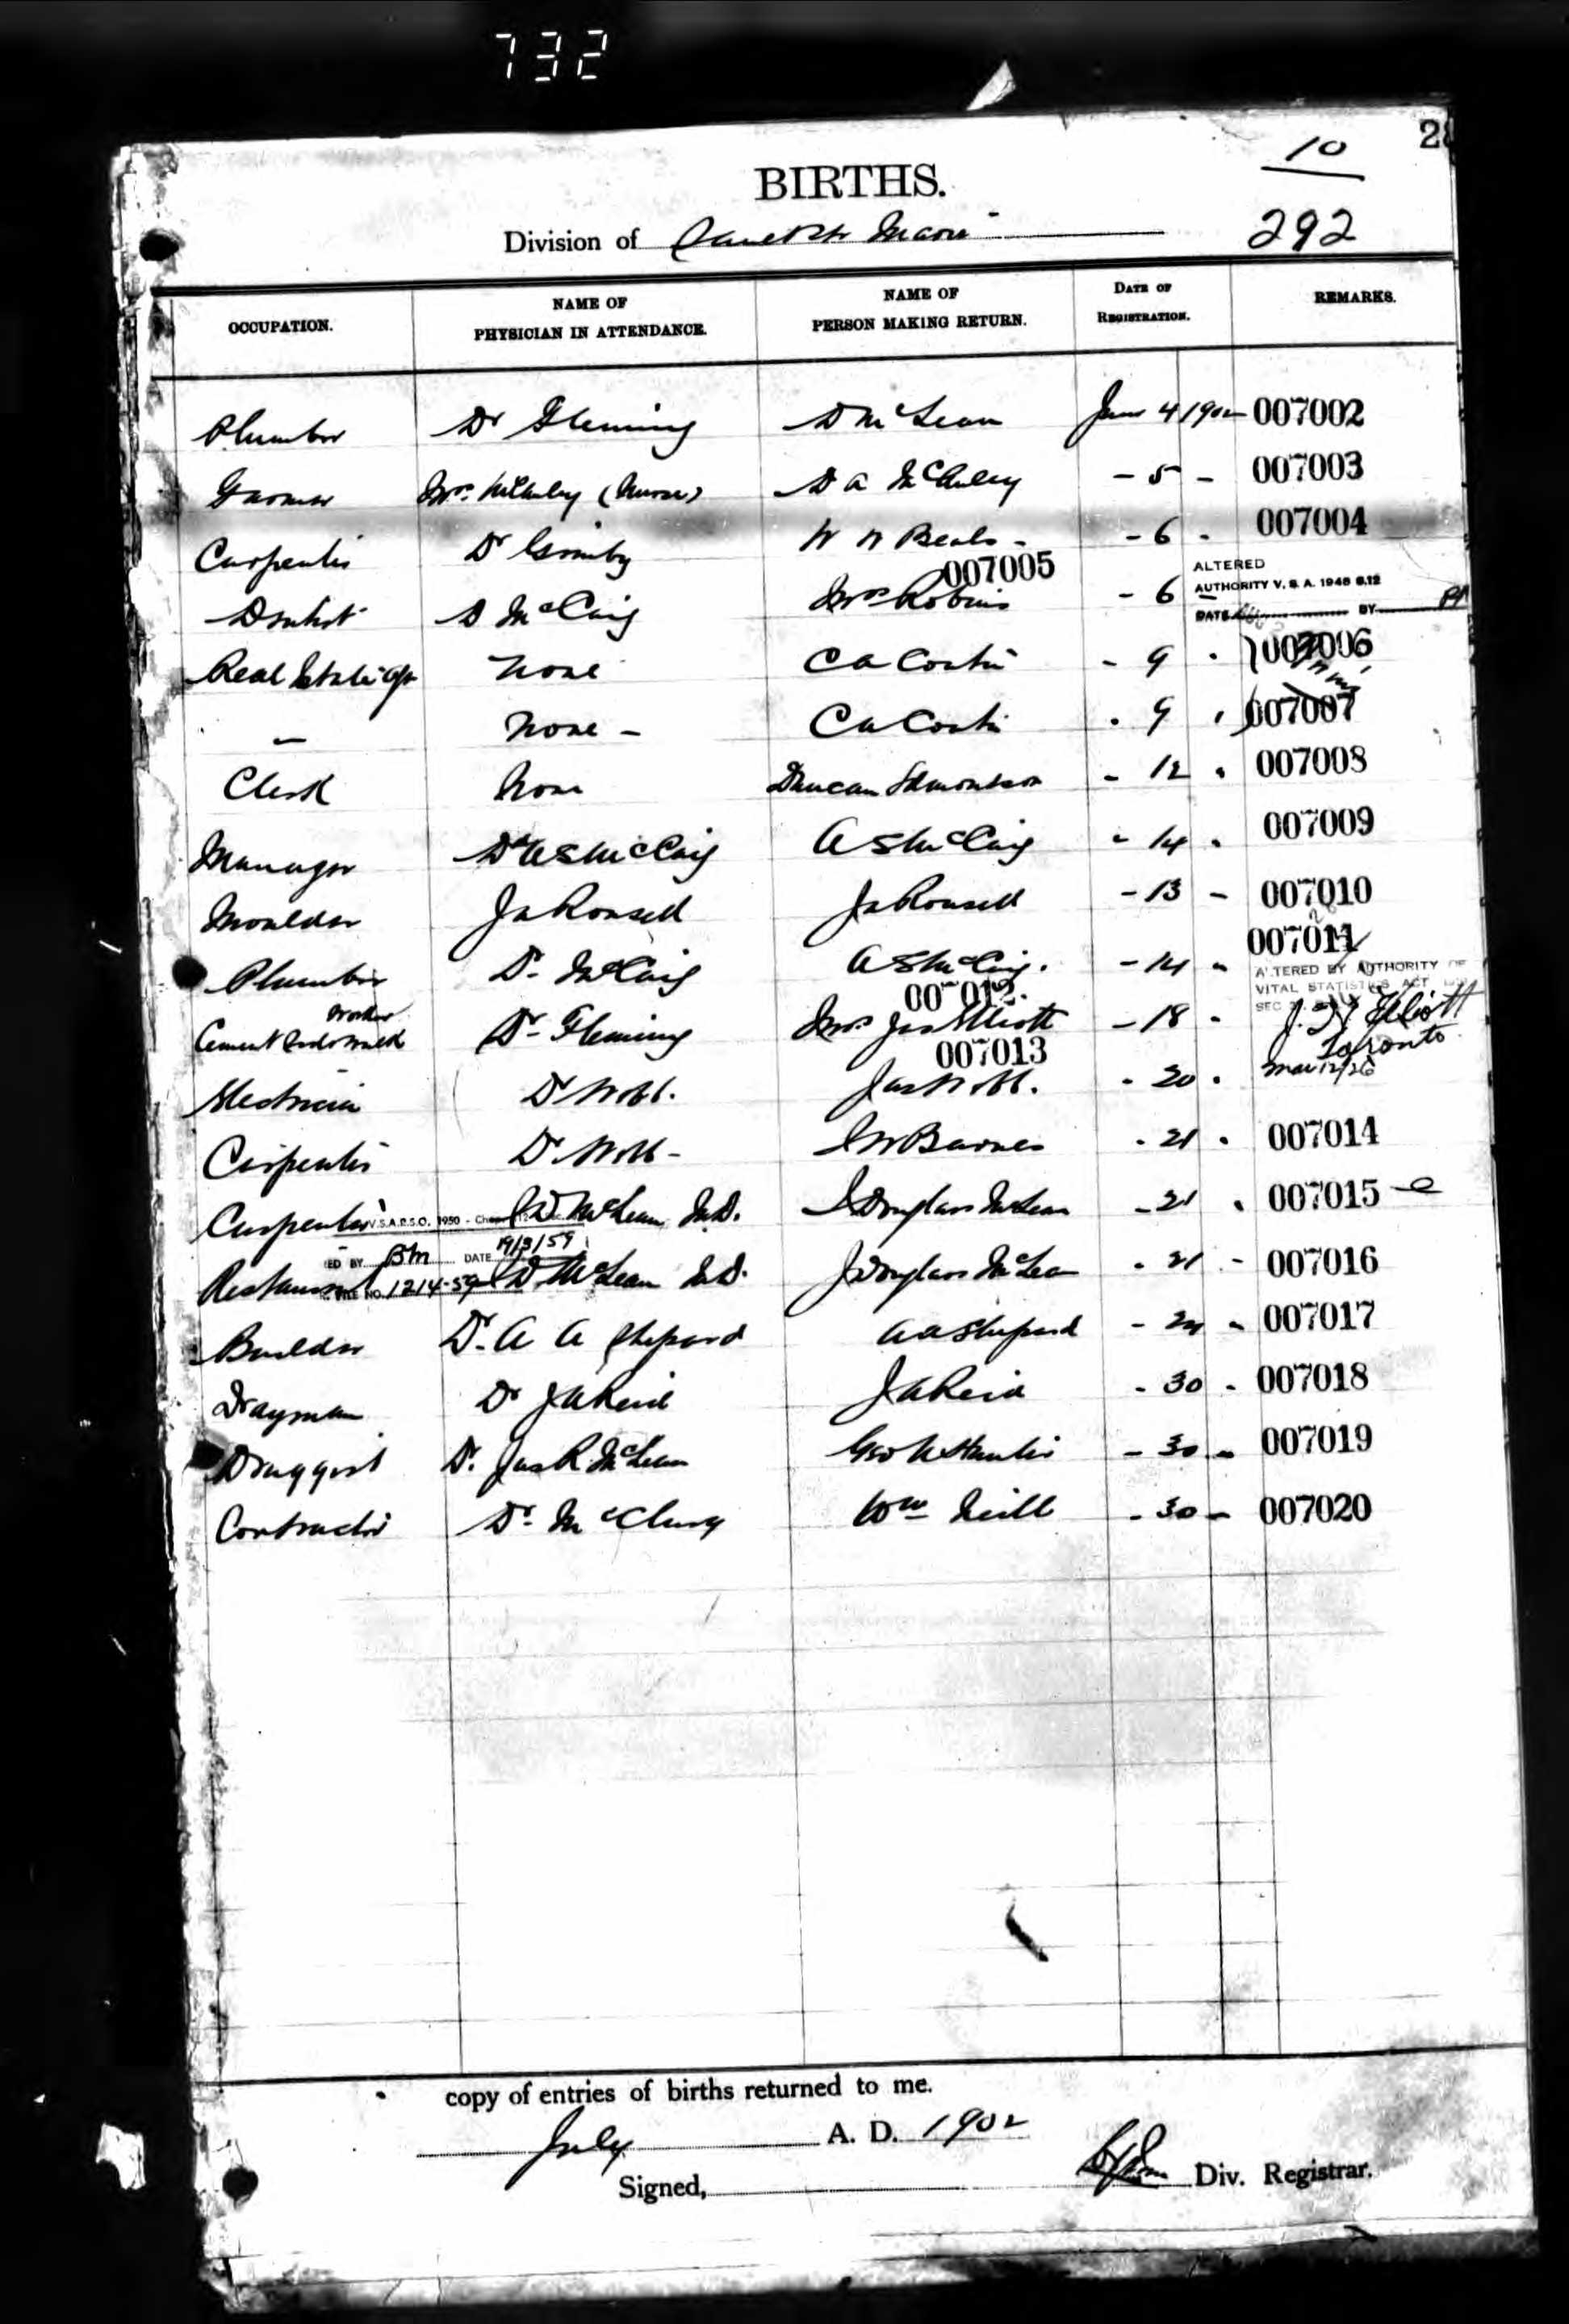 732
28
10
BIRTHS.
Division of Sault Ste Marie
292
OCCUPATION.
NAME OF PHYSICIAN IN ATTENDANCE.
NAME OF PERSON MAKING RETURN.
DATE OF REGISTRATION.
REMARKS.
Plumber Dr Fleming D McLean June 4 1902 007002
Farmer Mrs. McAuley (Nurse) D A McAuley - 5 - 007003
Carpenter Dr Gimby W N Beals - - 6 - 007004
007005
ALTERED
AUTHORITY V. S. A. 1948 S.12
DATE BY
Dentist D McCaig Mrs Robins - 6
Real Estate Agt None C A Coste - 9 " 007006
— None - C A Coste " 9 " 007007
Clerk None Duncan Edmonson - 12 " 007008
Manager Dr A S McCaig A S McCaig " 14 " 007009
Moulder Jn Rousell Jn Rousell - 13 - 007010
Plumber Dr. McCaig A S McCaig. - 14 " 007011
ALTERED BY AUTHORITY OF
VITAL STATISTICS ACT
SEC
007012.
Worker
Cement Dr Fleming Mrs Jas Elliott - 18 " J. Elliott
Toronto
Mar 12/26
007013
Electrician Dr Webb. - 20 .
Carpenter Dr Webb - Barnes . 21 . 007014
Carpenter J D McLean M.D. J Douglas McLean - 21 " 007015
V.S.A.R.S.O. 1950 -
ED BY BM DATE 19/3/59
FILE NO. 1214-59
Restaurant J D McLean M.D. J Douglas McLean . 21 - 007016
Builder Dr. A A Shepard A A Shepard - 24 " 007017
Drayman Dr J A Reid J A Reid - 30 - 007018
Druggist Dr. Jas R McLean Geo - 30 - 007019
Contractor Dr. McClurg Wm Neill - 30 - 007020
copy of entries of births returned to me.
July A. D. 1902
Signed, Div. Registrar.